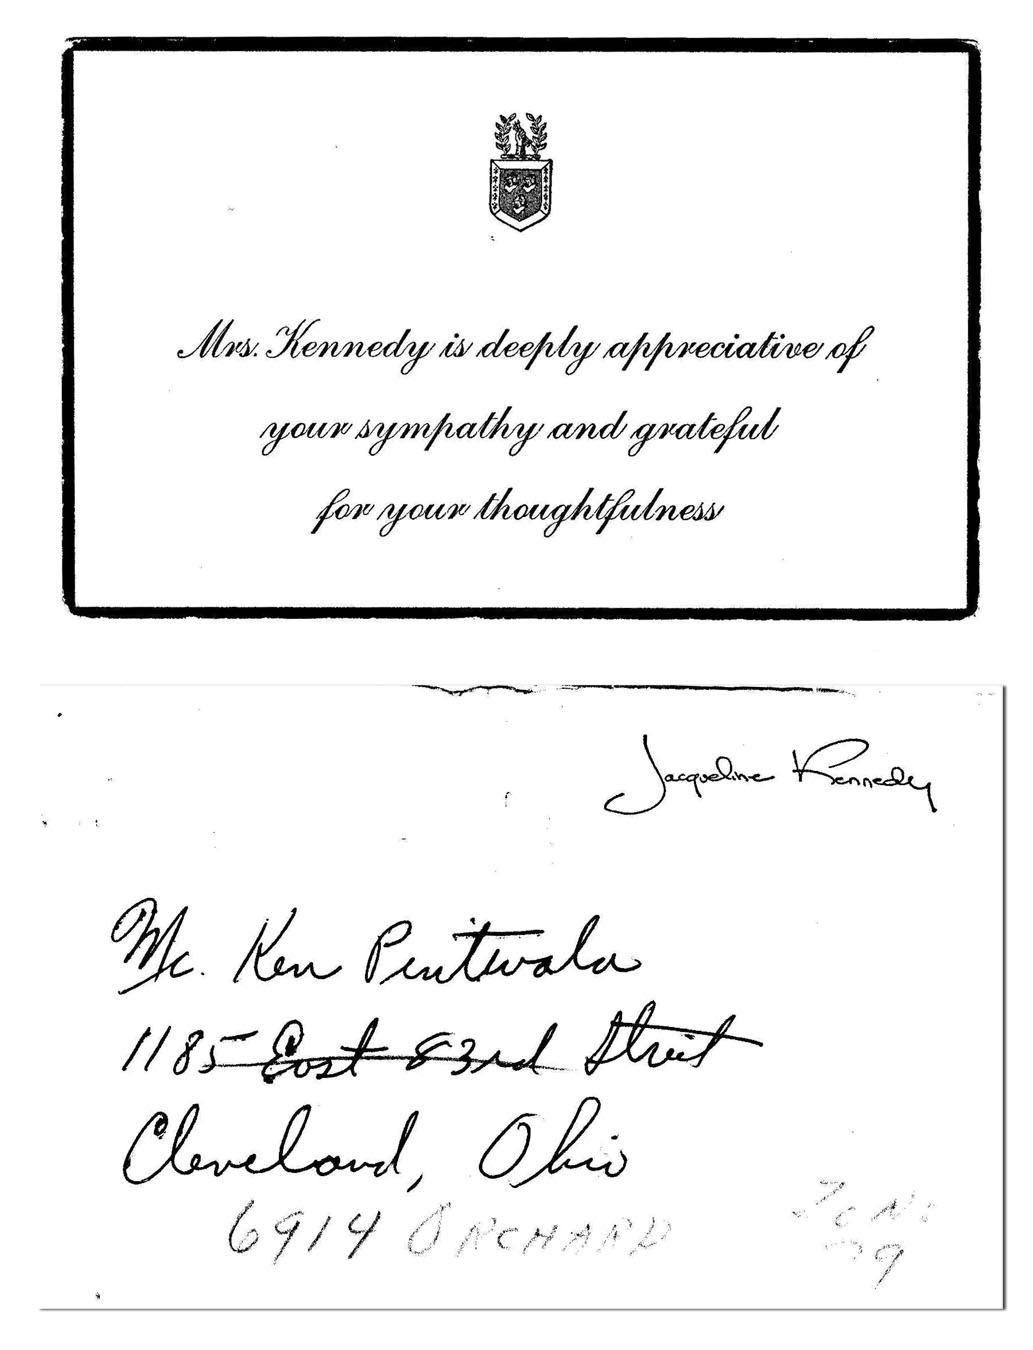 Mrs. Kennedy is deeply appreciative of
your sympathy and grateful
for your thoughtfulness
Jacqueline Kennedy
Mr. Ken Pentwala
1185 East 83rd Street
Cleveland, Ohio
6914 ORCHARD